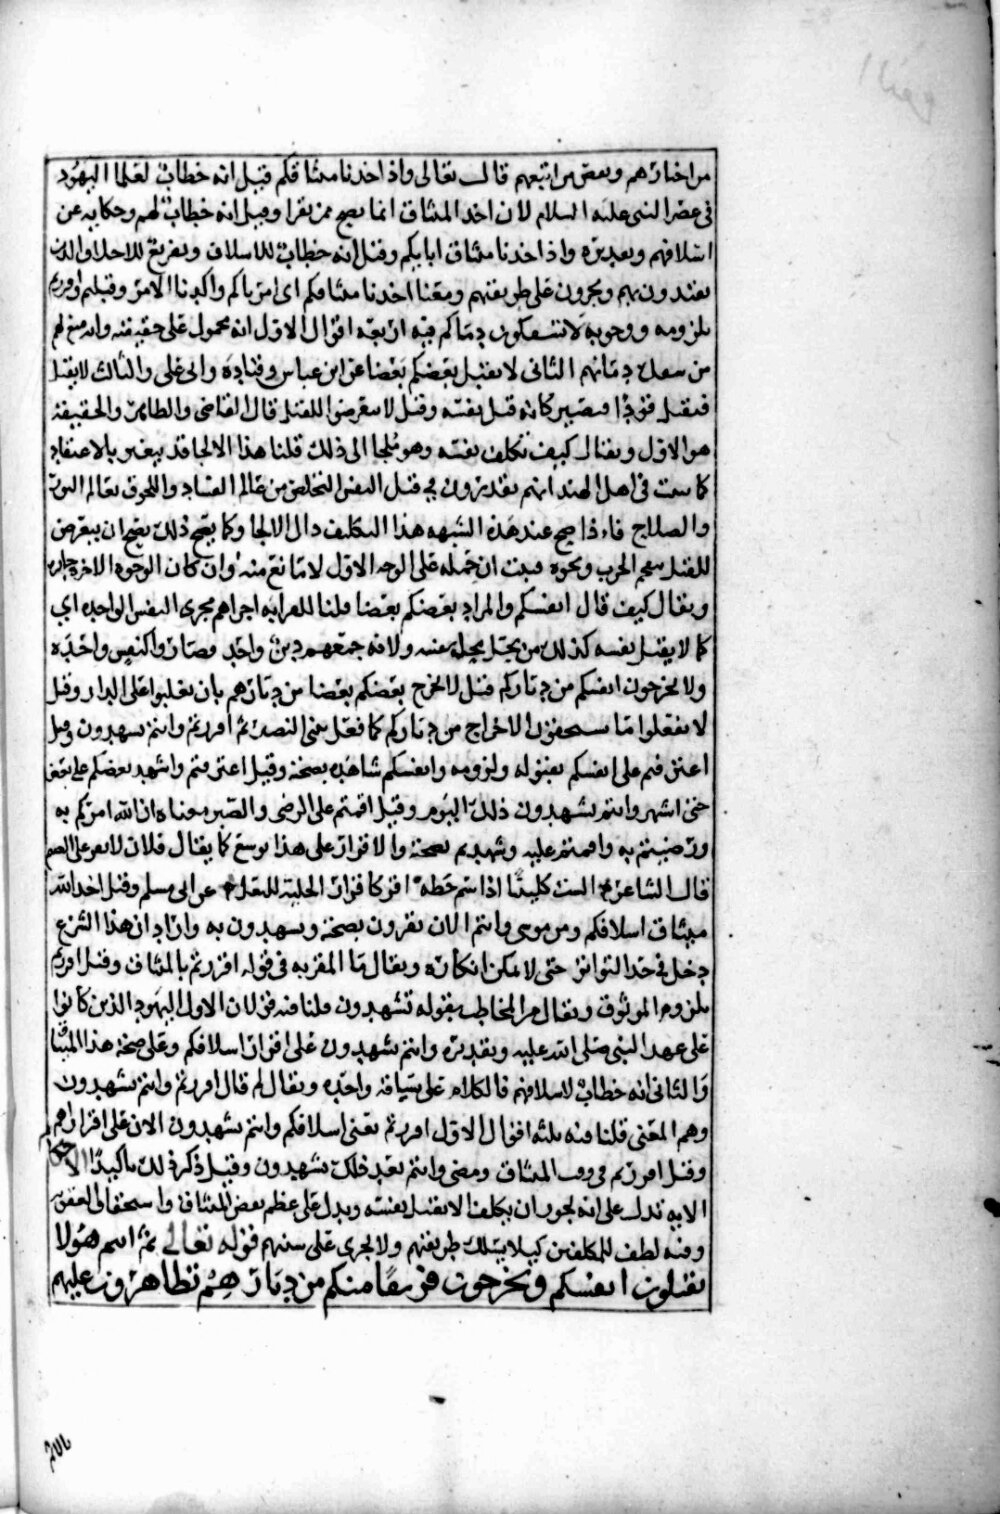 من اخبارهم وبعض من اتبعهم قال تعالى واذ اخذنا ميثاقكم قيل انه خطاب لعلما اليهود
في عصر النبي عليه السلام لان اخذ الميثاق انما يصح ممن يقرا وقيل انه خطاب لهم وحكايه عن
اسلافهم وتقديره واذ اخذنا ميثاق ابايكم وقيل انه خطاب للاسلاف وتقريع للاخلاف الذين
يقتدون بهم ويجرون على طريقتهم ومعنا اخذنا ميثاقكم اى امرناكم واكدنا الامر وقبلتم واقررتم
بلزومه ووجوبه لا تسفكون دماكم فيه اربعه اقوال الاول انه محمول على حقيقته وانه منع لهم
من سفك دمائهم الثاني لا يقتل بعضكم بعضا عن ابن عباس وقتاده وابى على والثالث لا يقتل
فيقتل قودا فيصير كانه قتل نفسه وقيل لا يتعرض للقتل قال القاضي والظاهر والحقيقه
هو الاول ويقال كيف تكلف نفسه وهو ملجا الى ذلك قلنا هذا الالجا قد يتغير بالاعتقاد
كما ثبت في اهل الهند انهم يقدرون في قتل النفس التخلص من عالم الفساد واللحوق بعالم النور
والصلاح فاذا صح عند هذه الشبهه هذا التكليف زال الالجا وكما يقبح ذلك يقبح ان يتعرض
للقتل ونحوه فيجب ان حمله على الوجه الاول لا مانع منه وان كان الوجوه الاخره جايزه
ويقال كيف قال انفسكم والمراد بعضكم بعضا قلنا للقرابه اجراهم مجرى النفس الواحده اي
كما لا يقتل نفسه كذلك من يحل محل نفسه ولانه جمعهم دين واحد فصاروا كنفس واحده
ولا تخرجون انفسكم من دياركم قيل لا يخرج بعضكم بعضا من ديارهم بان يغلبوا على الدار وقيل
لا تفعلوا ما تستحقون الاخراج من دياركم كما فعل بني النضير ثم اقررتم وانتم تشهدون قيل
اعترفتم على انفسكم بقبوله ولزومه وانفسكم شاهده بصحته وقيل اعترفتم واشهد بعضكم على بعض
حين اشهر وانتم تشهدون ذلك اليوم وقيل اقمتم على الرضى والصبر معناه ان الله امركم به
ورضيتم به واقمتم عليه وشهدتم بصحته والاقرار على هذا توسع كما يقال فلان لا يقر على الضيم
قال الشاعر الست كليبيا اذا سيم خطه اقر كاقرار الحليله للبعل عن ابي مسلم وقيل اخذ الله
ميثاق اسلافكم ومن موسى وانتم الان تقرون بصحته وتشهدون به واراد ان هذا الشرع
دخل في حد التواتر حتى لا يمكن انكاره ويقال ما المقر به في قوله اقررتم بالميثاق وقيل اقررتم
بلزوم الموثوق ويقال من المخاطب بقوله تشهدون قلنا فيه قولان الاول اليهود الذين كانوا
على عهد النبي صلى الله عليه وتقديره وانتم تشهدون على اقرار اسلافكم وعلى صحة هذا الميثاق
والثاني انه خطاب لاسلافهم فالكلام على سياقه واحده ويقال لم قال اقررتم وانتم تشهدون
وهم المعنى قلنا فيه ثلثه اقوال الاول اقررتم يعني اسلافكم وانتم تشهدون الان على اقرارهم
وقيل اقررتم في وقت الميثاق ومضى وانتم بعد ذلك تشهدون وقيل ذكر ذلك تاكيدا الاحكام
الايه تدل على انه يجوز ان يكلف الا يقتل نفسه ويدل على عظم نقض الميثاق واستحقاق العقوبه
وفيه لطف للمكلفين كيلا يسلك طريقتهم ولا يجرى على سننهم قوله تعالى ثم انتم هولا
تقتلون انفسكم وتخرجون فريقا منكم من ديارهم تظاهرون عليهم